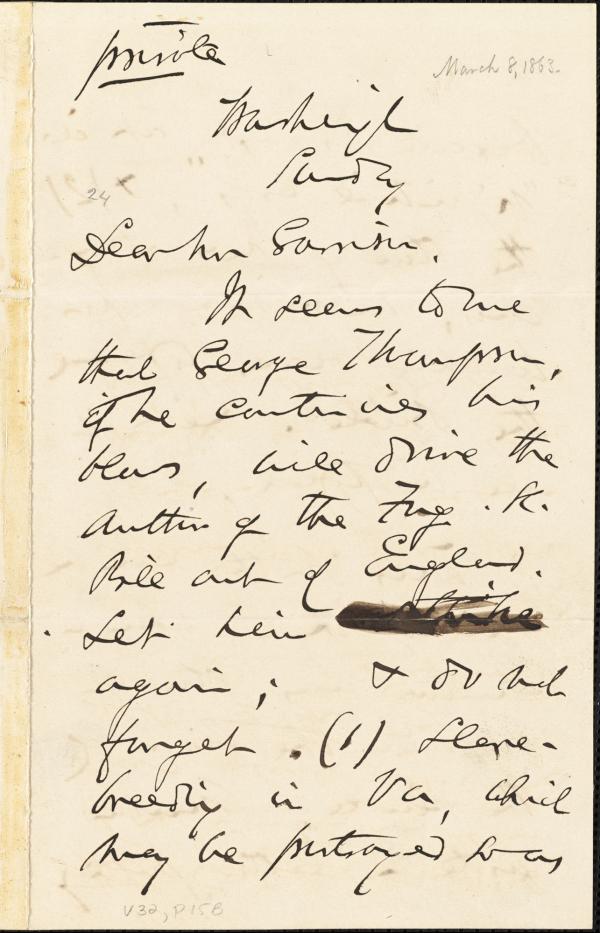 private
March 8, 1863.
Washington
Sunday
24
Dear Mr Garrison.
It seems to me
that George Thompson,
if he continues his
blows, will drive the
author of the Fug. S.
Bill out of England.
Let him strike
again; & do not
forget . (1) Slave-
breeding in Va, which
may be portrayed so as
V32, P15B